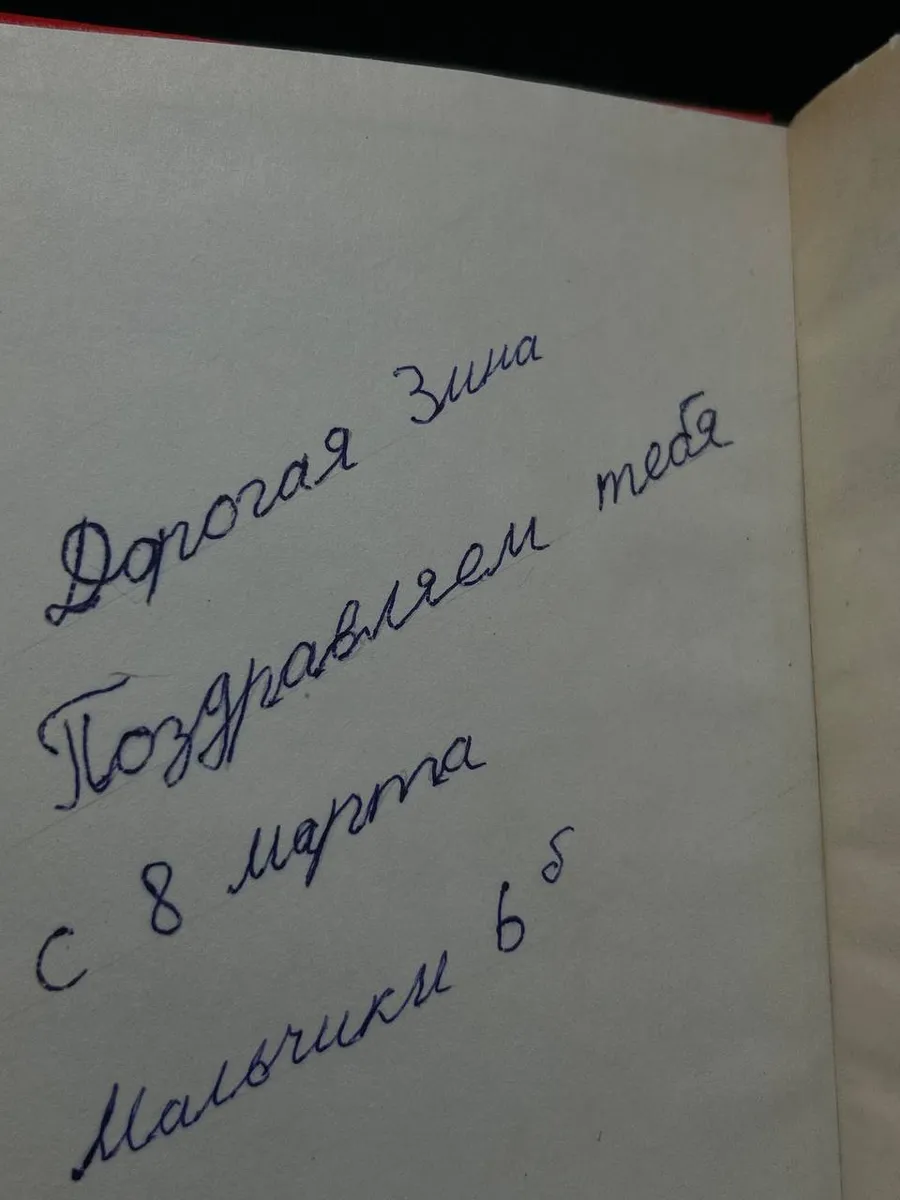 Дорогая Зина
Поздравляем тебя
с 8 марта
Мальчики 6 б